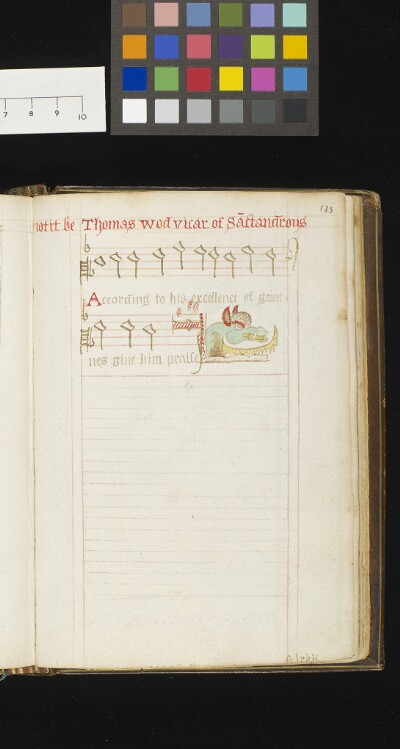 7 8 9 10
133
notit be Thomas wod vicar of Sāctandrous
According to his excellence of great
nes giue him praise